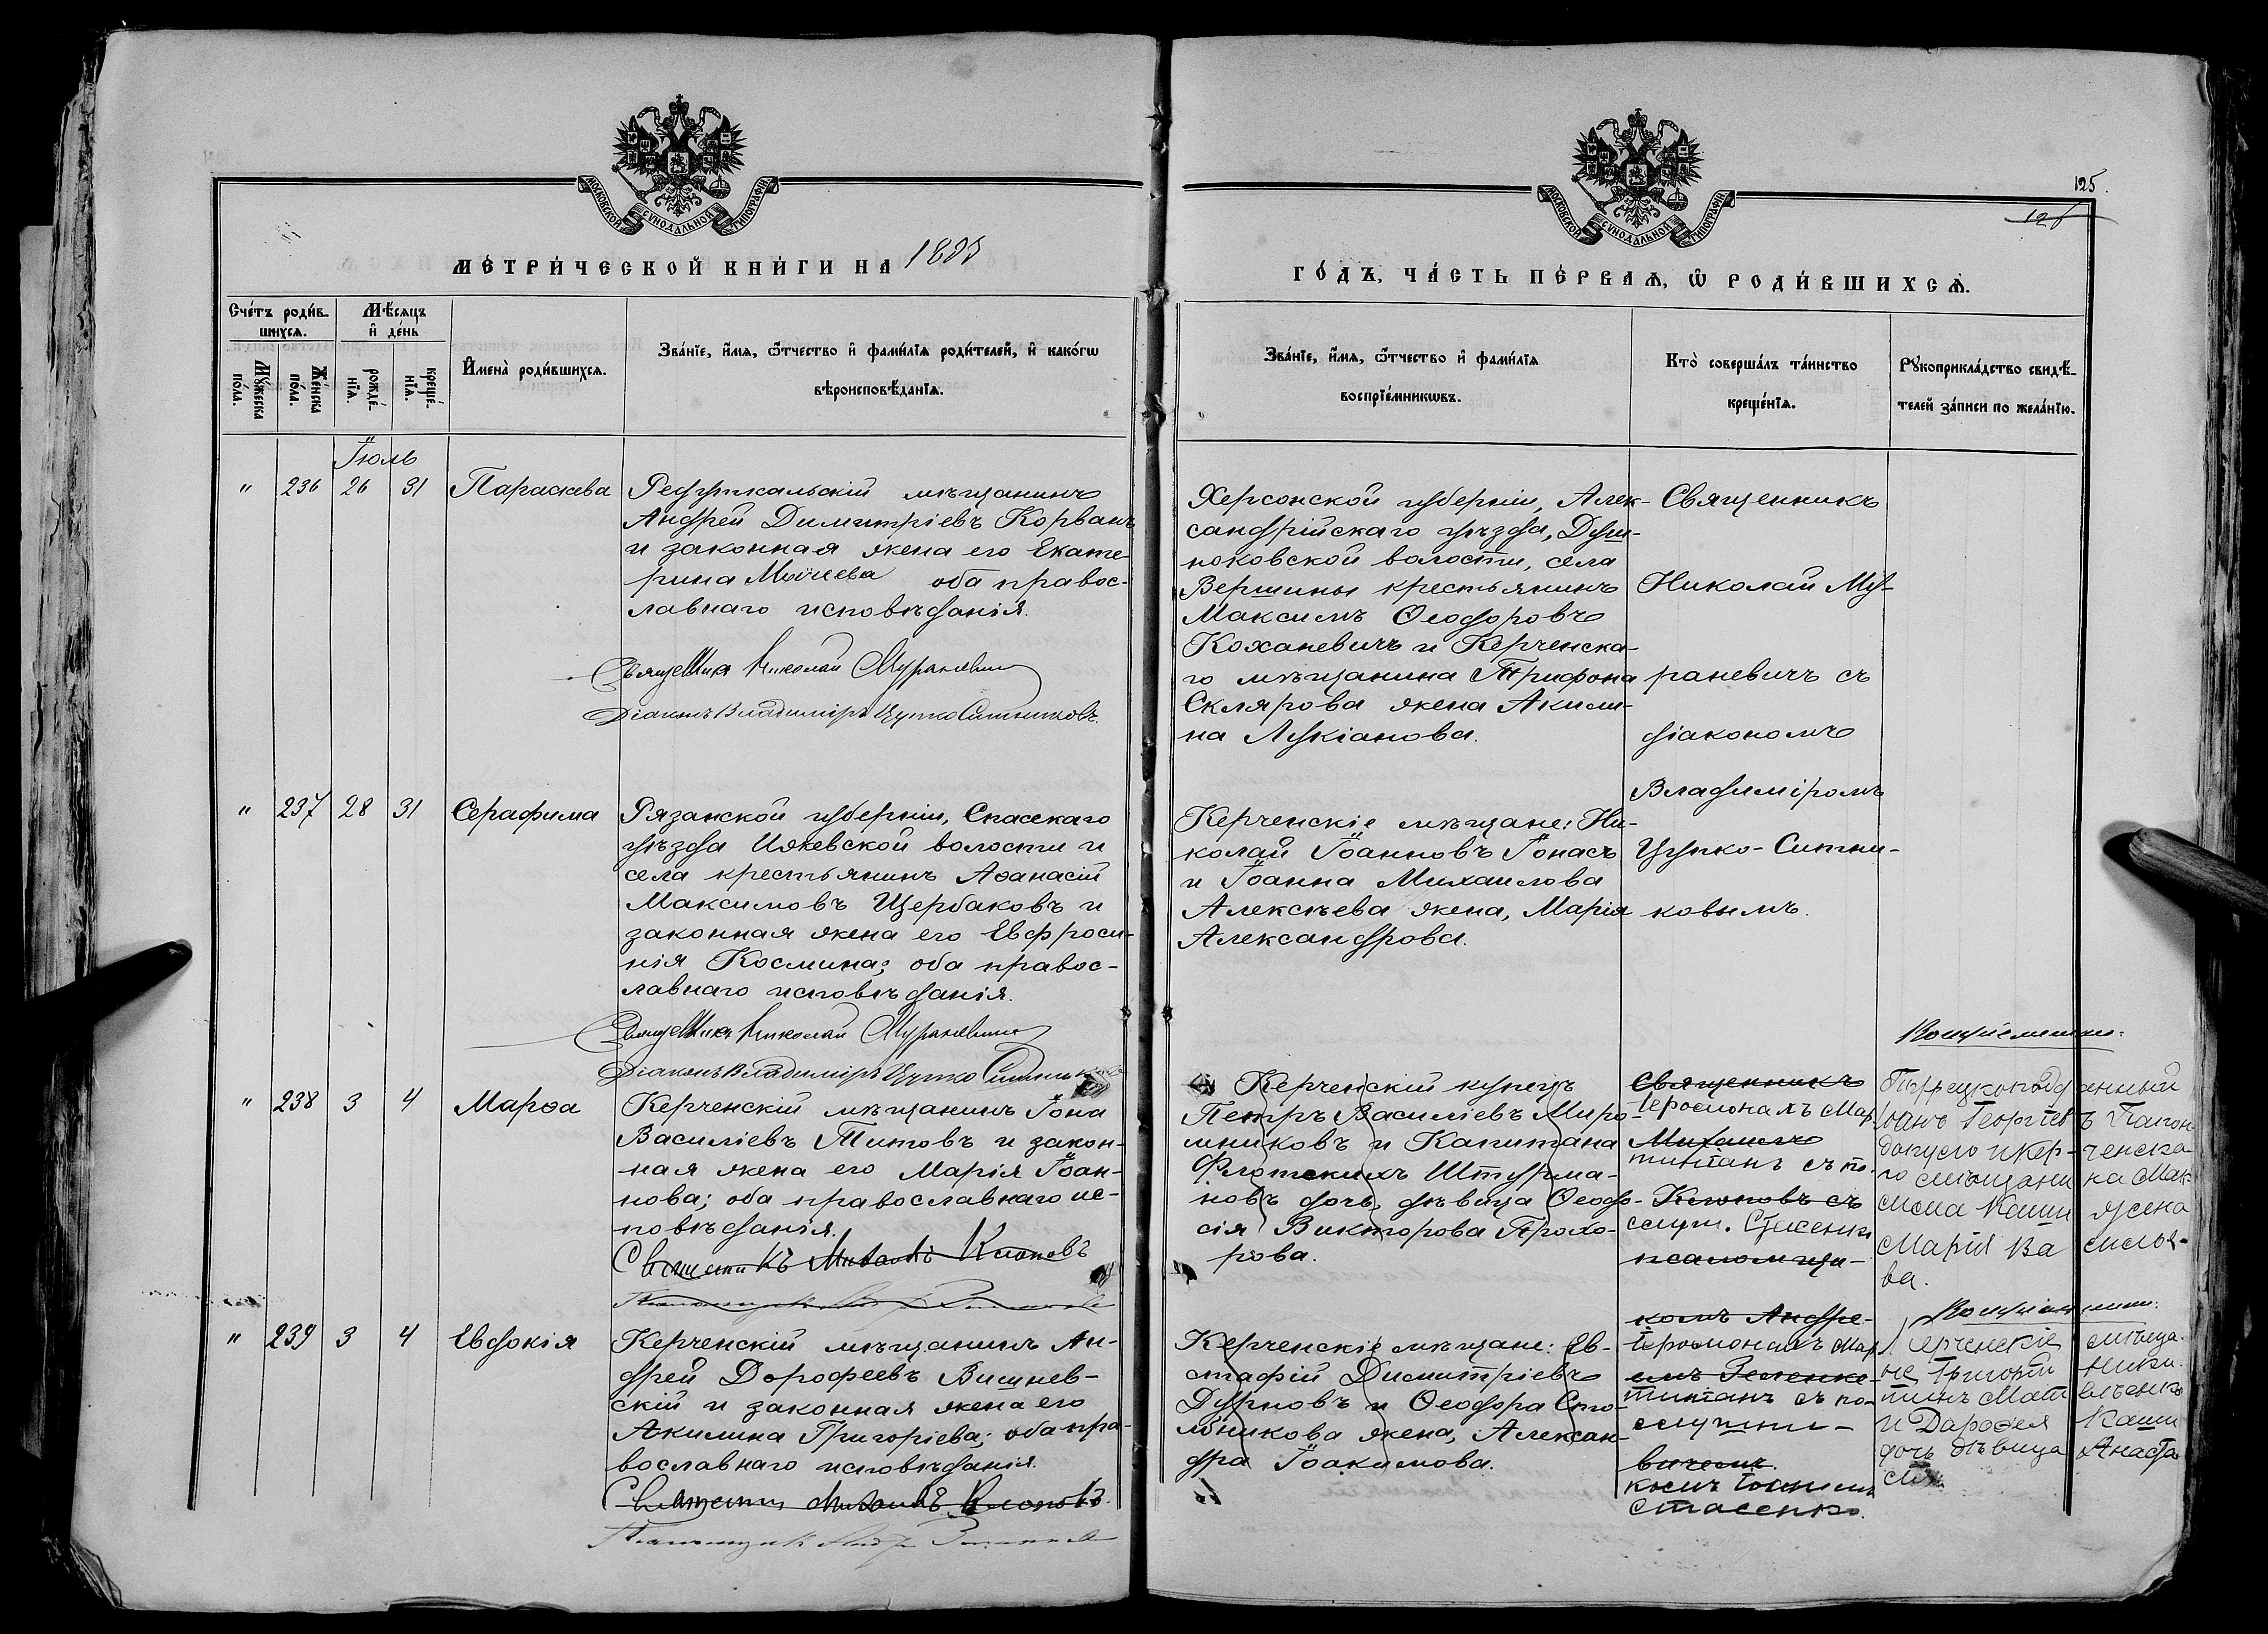 МОСКОВСКОЙ СѴНОДАЛЬНОЙ ТИПОГРАФІИ.
МЕТРИ́ЧЕСКОЙ КНИ́ГИ НА
Сче́тъ роди́в-
шихсѧ.
Мѣ́сѧцъ
и҆ де́нь
Мꙋ́жеска
по́ла.
Же́нска
по́ла.
рожде́-
нїѧ.
креще́-
нїѧ.
И҆мена̀ роди́вшихсѧ.
Зва́нїе, и҆́мѧ, ѻ҆́тчество и҆ фами́лїѧ роди́телей, и҆ како́гѡ
вѣроисповѣ́данїѧ.
Іюль
" 236 26 31 Параскева
Андрей Димитріевъ Корвань
и законная жена его Екате-
рина оба правос-
лавнаго исповѣданія.
Священникъ Николай Мураневичъ
Діаконъ Владиміръ Цупко Ситниковъ.
" 237 28 31 Серафима
Рязанской губерніи, Спасскаго
уѣзда Ижевской волости и
села крестьянинъ Аѳанасій
Максимовъ Щербаковъ и
законная жена его Евфроси-
нія Космина; оба правос-
лавнаго исповѣданія.
Священникъ Николай Мураневичъ
Діаконъ Владиміръ Цупко Ситниковъ
" 238 3 4 Марѳа
Керченскій мѣщанинъ Іона
Василіевъ Титовъ и закон-
ная жена его Марія Іоан-
нова; оба православнаго ис-
повѣданія.
Священникъ Михаилъ Клоповъ
" 239 3 4 Евдокія
Керченскій мѣщанинъ Ан-
дрей Дорофеевъ Вишнев-
скій и законная жена его
Акилина Григоріева; оба пра-
вославнаго исповѣданія.
Священникъ Михаилъ Клоповъ.
МОСКОВСКОЙ СѴНОДАЛЬНОЙ ТИПОГРАФІИ.
125.
ГО́ДЪ, ЧА́СТЬ ПЕ́РВАѦ, Ѽ РОДИ́ВШИХСѦ.
Зва́нїе, и҆́мѧ, ѻ҆́тчество и҆ фами́лїѧ
воспрїе́мникѡвъ.
Кто̀ соверша́лъ та́инство
креще́нїѧ.
Рꙋкоприкла́дство свидѣ́-
телей за́писи по жела́нїю.
Херсонской губерніи, Алек-
сандрійскаго уѣзда,
волости, села
Вершины крестьянинъ
Максимъ Ѳеодоровъ
Коханевичъ и Керченска-
го мѣщанина Трифона
Склярова жена Акили-
на Лукіанова.
Священникъ
Николай Му-
раневичъ съ
діакономъ
Владиміромъ
Цупко-Ситни-
ковымъ.
Керченскіе мѣщане: Ни-
колай Іоанновъ Іонасъ
и Іоанна Михаилова
Алексѣева жена, Марія
Александрова.
Керченскій купецъ
Петръ Василіевъ Миро-
шниковъ и Капитана
Флотскихъ Штурма-
новъ дочь, дѣвица Ѳеодо-
сія Викторова Прохо-
рова.
Священникъ
Іеромонахъ Мар-
Михаилъ
тиніанъ съ по-
Клоповъ съ
послуш. Стасенк
псаломщи-
комъ Андре-
Воспріемники:
Іоаннъ Георгіевъ
и Кер-ченска-
го мѣщанина Мак-
сима жена
Марія Василь-
ва.
Керченскіе мѣщане: Ев-
стафій Димитріевъ
Дурновъ и Ѳеодора Сто-
льникова жена, Алексан-
дра Іоакимова.
Іеромонахъ Мар
емъ Зеленке-
тиніанъ съ по-
слушни-
вичемъ.
комъ
Стасенко.
Керченскіе мѣща-
не Григорій
и Дароѳея
дочь дѣвица Анаста
сія